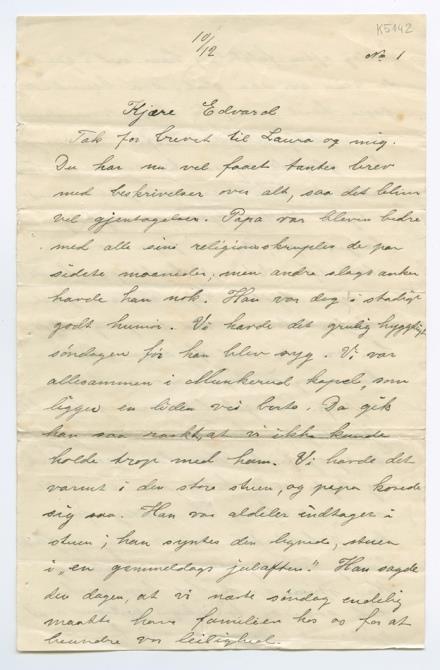 K5142
10/12
No 1
Kjære Edvard
Tak for brevet til Laura og mig.
Du har nu vel faaet tantes brev
med beskrivelser over alt, saa det bliver
vel gjentagelser. Papa var bleven bedre
med alle sine religionsskrupler de par
sidste maaneder, men andre slags anker
havde han nok. Han var dog i stadigt
godt humør. Vi havde det grulig hyggeligt
søndagen før han blev syg. Vi var
allesammen i Munkerud kapel, som
ligger en liden vei borte. Da gik
han saa raskt, at vi ikke kunde
holde trop med ham. Vi havde det
varmt i den store stuen, og papa kosede
sig saa. Han var aldeles indtaget i
stuen; han syntes den lignede, stuen
i „en gammeldags juleaften". Han sagde
den dagen, at vi næste søndag endelig
maatte have familien hos os for at
beundre vor leilighed.